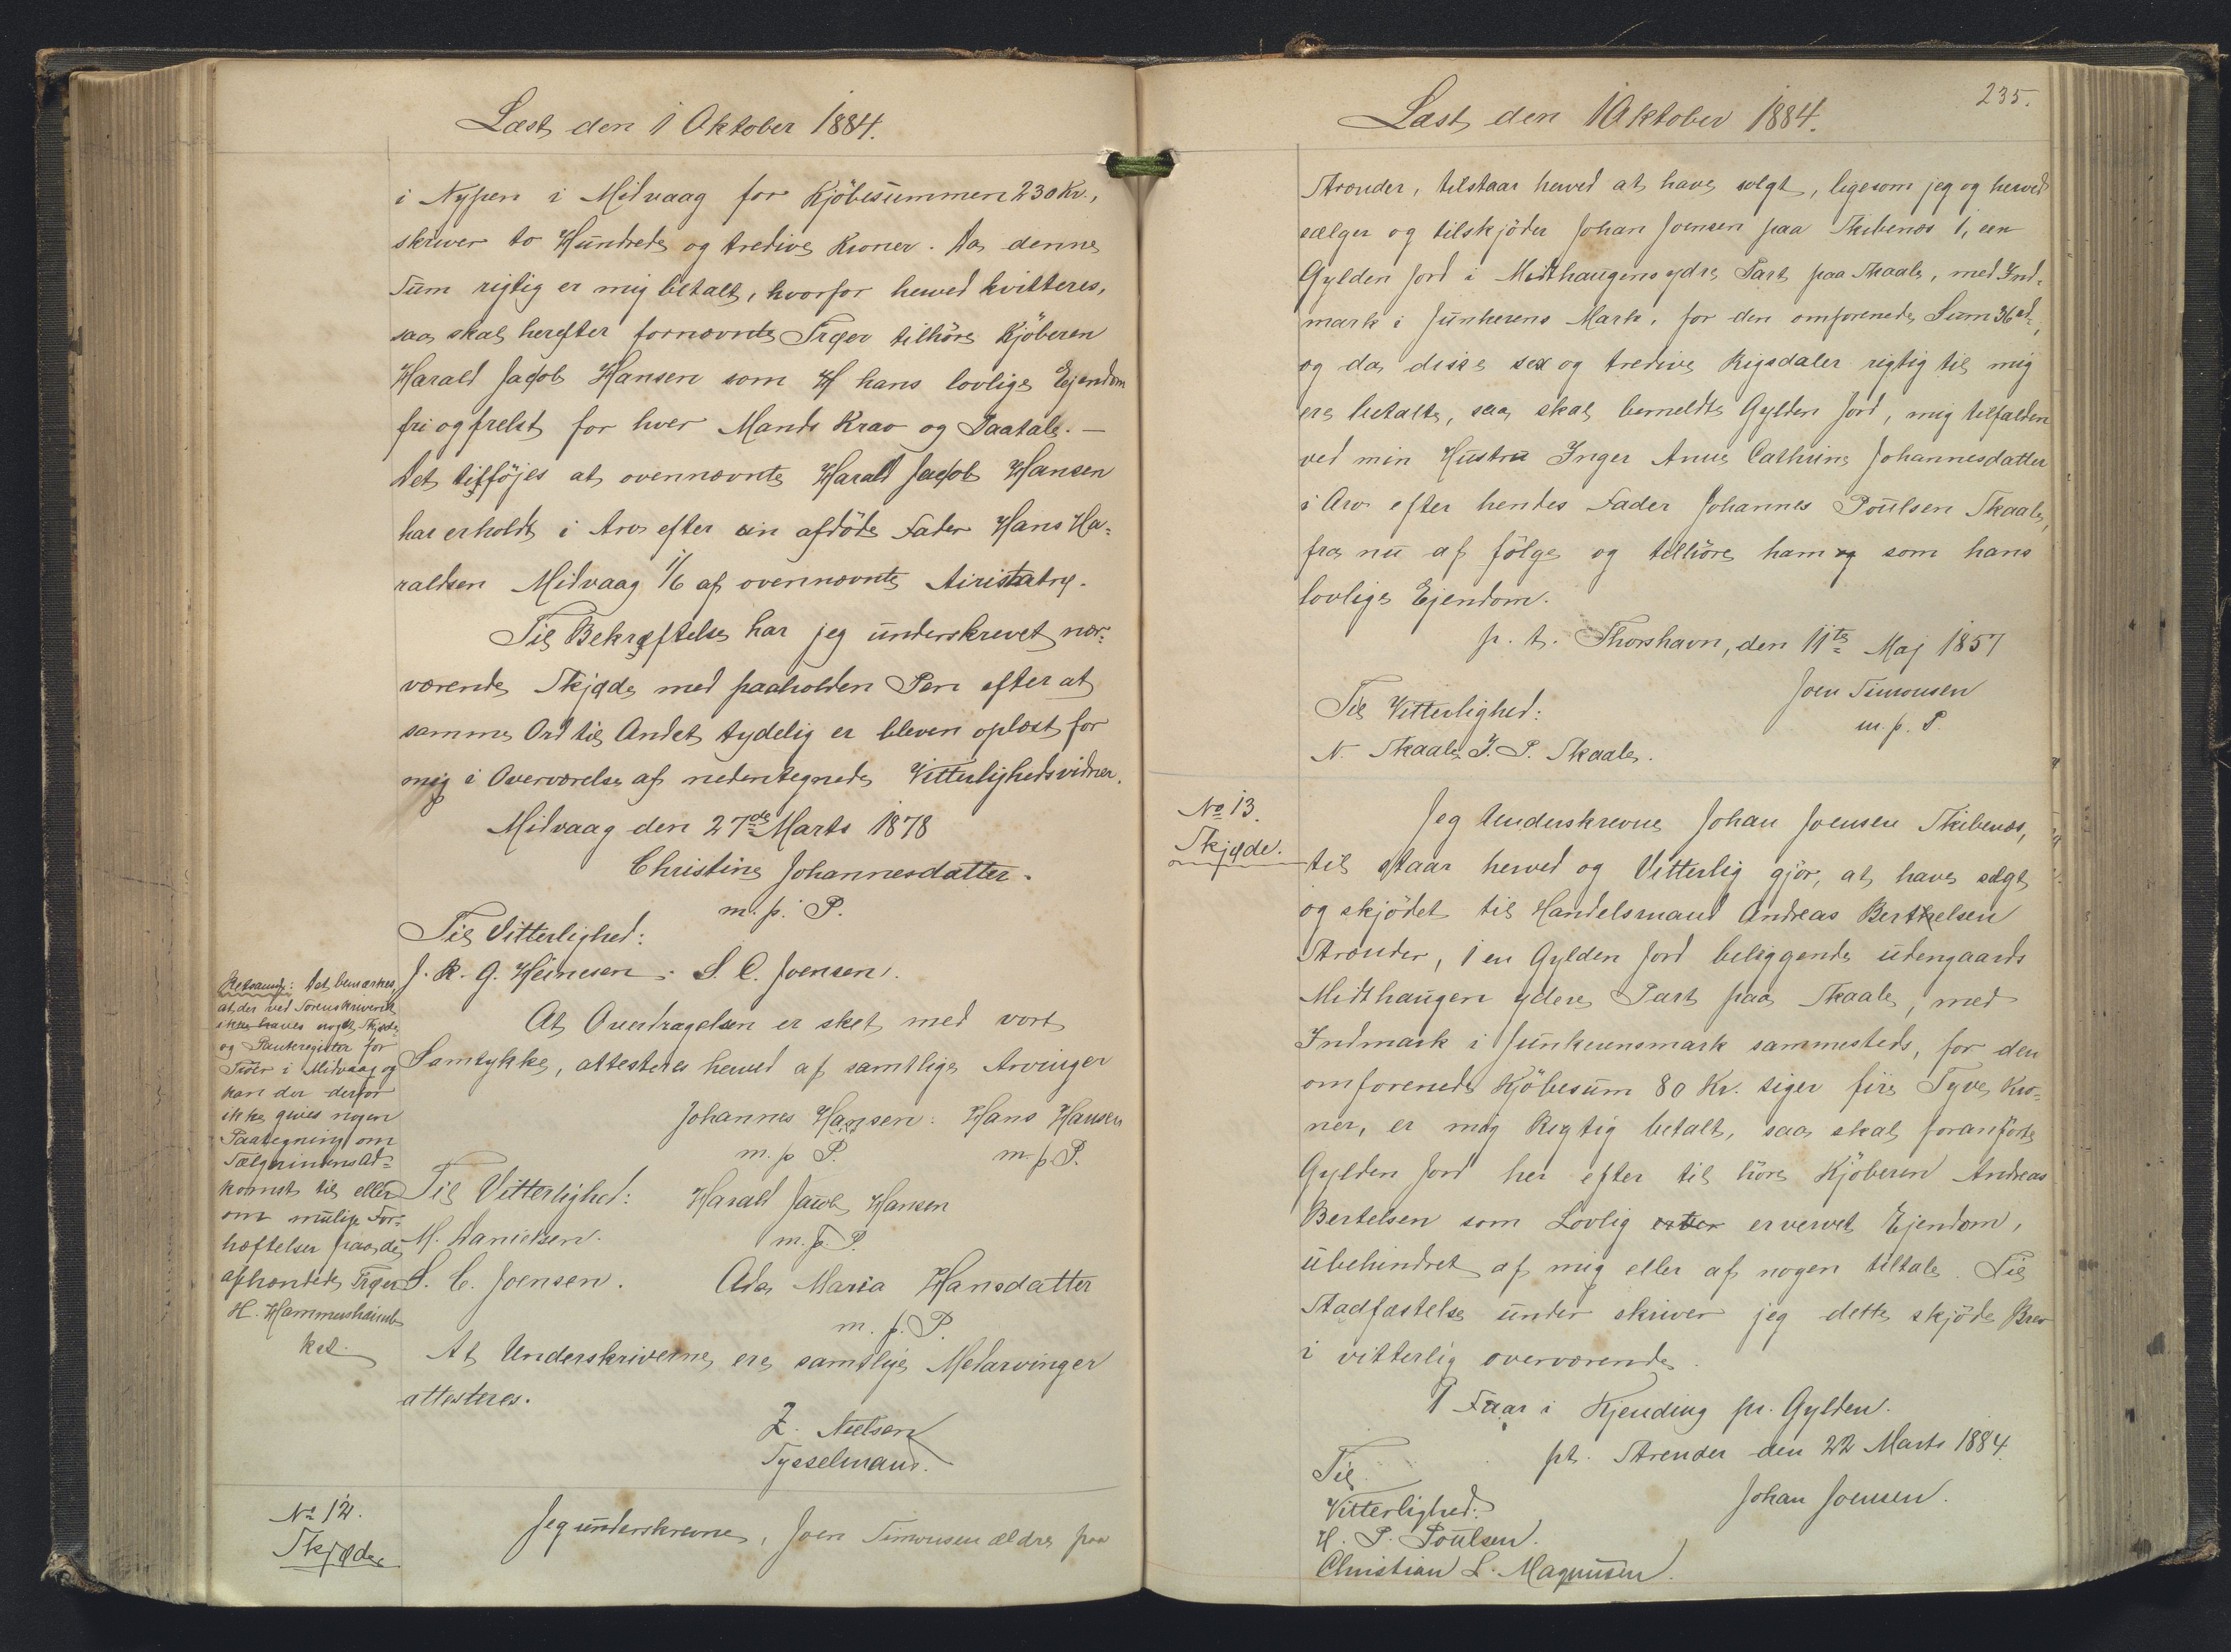 Læst den 1 Oktober 1884.
i Nypen i Midvaag for Kjöbesummen 230 Kr.,
skriver to Hundrede og tredive Kroner. Da denne
Sum rigtig er mig betalt, hvorfor herved kvitteres,
saa skal herefter fornævnte Træer tilhöre Kjöberen
Harald Jacob Hansen som hans lovlige Ejendom
fri og frelst for hver Mands Krav og Paatale. —
Det tilföjes at ovennævnte Harald Jacob Hansen
har erholdt i Arv efter sin afdöde Fader Hans Ha-
raldsen Midvaag 1/6 af ovennævnte
Til Bekræftelse har jeg underskrevet nær-
værende Skjøde med paaholden Pen efter at
samme Ord til Andet tydelig er bleven oplæst for
mig i Overværelse af nedentegnede Vitterlighedsvidner.
Midvaag den 27de Marts 1878
Christine Johannesdatter.
m. p. P.
Til Vitterlighed:
J. K. G. Heinesen. S. C. Joensen.
At Overdragelsen er sket med vort
Samtykke, attesteres herved af samtlige Arvinger
Johannes Hansen: Hans Hansen
m. p P. m. p. P.
Til Vitterlighed: Harald Jacob Hansen
M. Danielsen. m. p. P.
S. C. Joensen. Ada Maria Hansdatter
m. p. P.
At Underskriverne ere samtlige Medarvinger
attesteres.
Z. Nielsen
Sysselmand.
Retsanm: Det bemærkes,
at der ved Sorenskriveriet
ikke haves noget Skjøde
og Panteregister for
Træer i Midvaag og
kan der derfor
ikke gives nogen
Paategning om
Sælgerindens Ad-
komst til eller
om mulige For-
hæftelser paa de
afhændede Træer
H. Hammershaimb
kst.
No 12.
Skjøde
Jeg underskrevne, Joen Simonsen ældre paa
235.
Læst den 1 Oktober 1884.
Strænder, tilstaar herved at have solgt, ligesom jeg og herved
sælger og tilskjöder Johan Joensen paa Skibenæs 1, een
Gylden Jord i Midthaugens ydre Part paa Skaale, med Ind-
mark i Junkerens Mark, for den omforenede Sum 36 rd,
og da disse sex og tredive Rigsdaler rigtig til mig
ere betalte, saa skal bemeldte Gylden Jord, mig tilfalden
ved min Hustru Inger Anne Cathrine Johannesdatter
i Arv efter hendes Fader Johannes Poulsen Skaale,
fra nu af fölge og tilhöre ham og som hans
lovlige Ejendom.
p. t. Thorshavn, den 11te Maj 1857
Joen Simonsen
m. p. P.
Til Vitterlighed:
N. Skaale J. P. Skaale.
No 13.
Skjøde.
Jeg Underskrevne Johan Joensen Skibenæs,
til staar herved og Vitterlig gjör, at have solgt
og skjödet til Handelsmand Andreas Berthelsen
Strænder, 1 en Gylden Jord beliggende udengaards
Midthaugen ydere Part paa Skaale, med
Indmark i Junkerensmark sammesteds, for den
omforenede Kjöbesum 80 Kr. siger fire Tyve Kro-
ner, er mig Rigtig betalt, saa skal foranförte
Gylden Jord her efter til höre Kjöberen Andreas
Bertelsen som Lovlig ervervet Ejendom,
ubehindret af mig eller af nogen tiltale. Til
Stadfæstelse under skriver jeg dette skjöde Brev
i vitterlig overværende.
1 Faar i Kjending pr. Gylden.
pt. Strender den 22 Marts 1884.
Johan Joensen.
Til
Vitterlighed:
H. P. Poulsen.
Christian L. Magnusen.